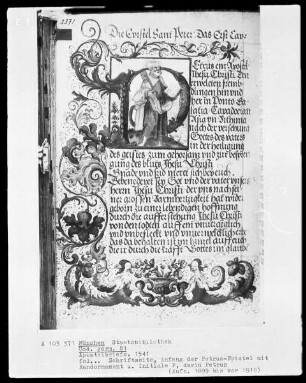 1371
Die Epistel Sant Peter. Das Erst Cap.
Petrus ein Apostl
Jhesu Christi. Den
erweleten frembd
lingen hin und
her in Ponto Ga
latia Cappadocia
Asia vn Bithinia
nach der versehung
Gottes des vaters
in der heiligung
des geistes zum gehorsam und zur bespren
gung des bluts Jhesu Christi
Gnade und frid mere sich bey euch.
Gebenedeiet sey Got und der vater unsers
herrn Jhesu Christi der uns nach sei
ner grossen barmhertzigkeit hat widder
geborn zu einer lebendigen hoffnung
durch die aufferstehung Jhesu Christi
von den todten
und unbeflekt und unverwelklich
das da behalten ist im himel auff euch
die ir durch die krafft Gottes
A 103 311 München Staatsbibliothek
Cod. germ. 81
Apostelbriefe. 1541
fol... Schriftseite, Anfang der Petrus-Epistel mit
Randornament u. Initiale P, darin Petrus
(Aufn. 1899 bis vor 1910)